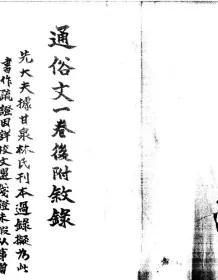 通俗文一卷後附敘錄
先大夫據甘泉林氏刊本過錄擬為此
書作疏證因詳校文選箋證未假从事者